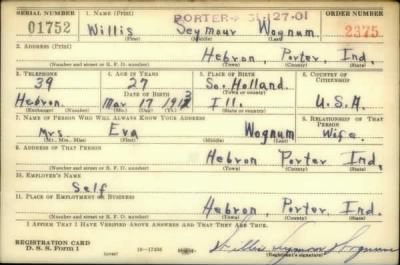 SERIAL NUMBER 1. NAME (Print) PORTER 31-127-01 ORDER NUMBER
01752 Willis Seymour Wognum. 2375
(First) (Middle) (Last)
2. ADDRESS (Print)
Hebron, Porter, Ind.
(Number and street or R. F. D. number) (Town) (County) (State)
3. TELEPHONE 4. AGE IN YEARS 5. PLACE OF BIRTH 6. COUNTRY OF CITIZENSHIP
39 27 So. Holland.
DATE OF BIRTH (Town or county)
Hebron Mar 17 1913 Ill. U.S.A.
(Exchange) (Number) (Mo.) (Day) (Yr.) (State or country)
7. NAME OF PERSON WHO WILL ALWAYS KNOW YOUR ADDRESS 8. RELATIONSHIP OF THAT PERSON
Mrs Eva Wognum Wife.
(Mr., Mrs., Miss) (First) (Middle) (Last)
9. ADDRESS OF THAT PERSON
Hebron Porter Ind.
(Number and street or R. F. D. number) (Town) (County) (State)
10. EMPLOYER'S NAME
Self
11. PLACE OF EMPLOYMENT OR BUSINESS
Hebron, Porter, Ind.
(Number and street or R. F. D. number) (Town) (County) (State)
I AFFIRM THAT I HAVE VERIFIED ABOVE ANSWERS AND THAT THEY ARE TRUE.
REGISTRATION CARD
D. S. S. Form 1 (over) 16-17105 Willis Seymour Wognum
(Registrant's signature)